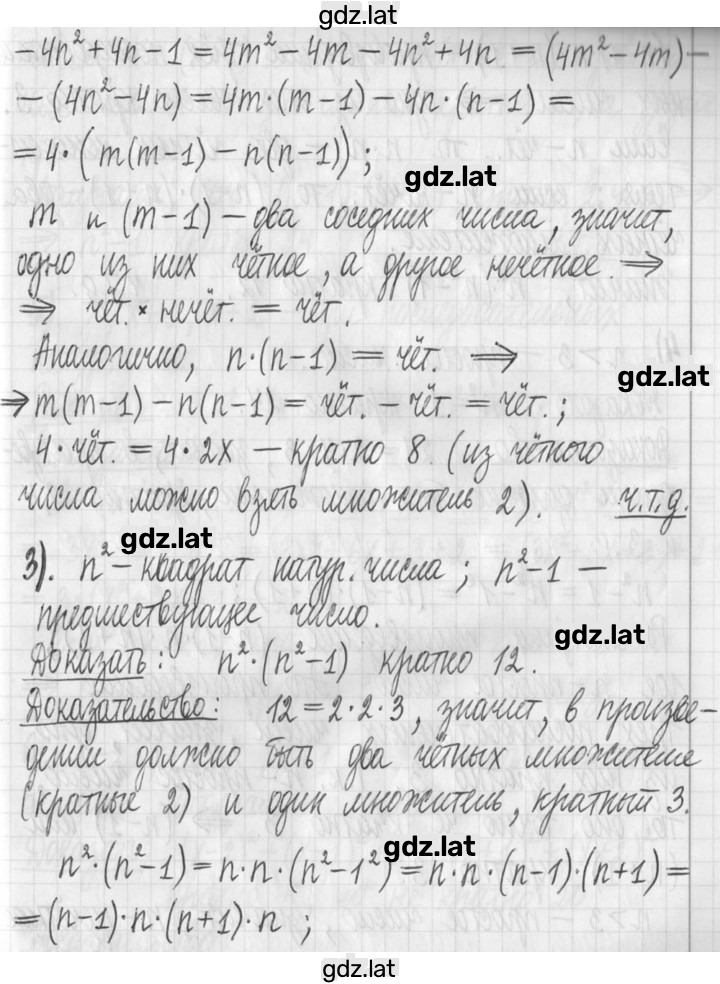 gdz.lat
-4n²+4n-1 = 4m²-4m-4n²+4n = (4m²-4m)-
-(4n²-4n) = 4m·(m-1)-4n·(n-1) =
= 4·(m(m-1)-n(n-1));
gdz.lat
m и (m-1) – два соседних числа, значит,
одно из них чётное, а другое нечётное. ⇒
⇒ чёт. × нечёт. = чёт.
Аналогично, n·(n-1) = чёт. ⇒
gdz.lat
⇒ m(m-1)-n(n-1) = чёт. - чёт. = чёт.;
4·чёт. = 4·2x – кратно 8. (из чётного
числа можно взять множитель 2). ч.т.д.
gdz.lat
3). n² – квадрат натур. числа; n²-1 –
предшествующее число.
gdz.lat
Доказать: n²·(n²-1) кратно 12.
Доказательство: 12=2·2·3, значит, в произве-
дении должно быть два чётных множителя
(кратные 2) и один множитель, кратный 3.
gdz.lat
n²·(n²-1) = n·n·(n²-1²) = n·n·(n-1)·(n+1) =
= (n-1)·n·(n+1)·n;
gdz.lat